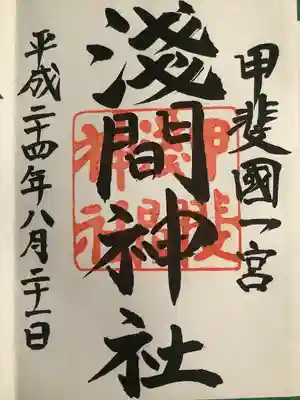 甲斐國一宮
淺間神社
平成二十四年八月二十一日